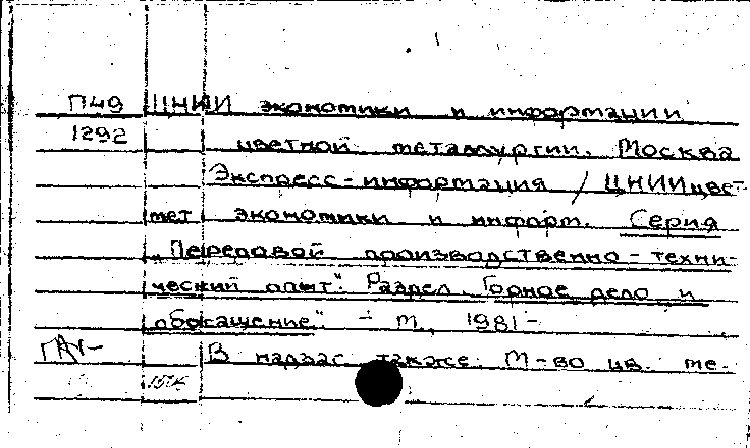 П49 ЦНИИ экономики и информации
1292 цветной металлургии. Москва
Экспресс-информация / ЦНИИцвет-
мет экономики и информ. Серия
„Передовой производственно-техни-
ческий опыт". Раздел „Горное дело и
обогащение". - М., 1981 -
В надзаг. также: М-во цв. ме-